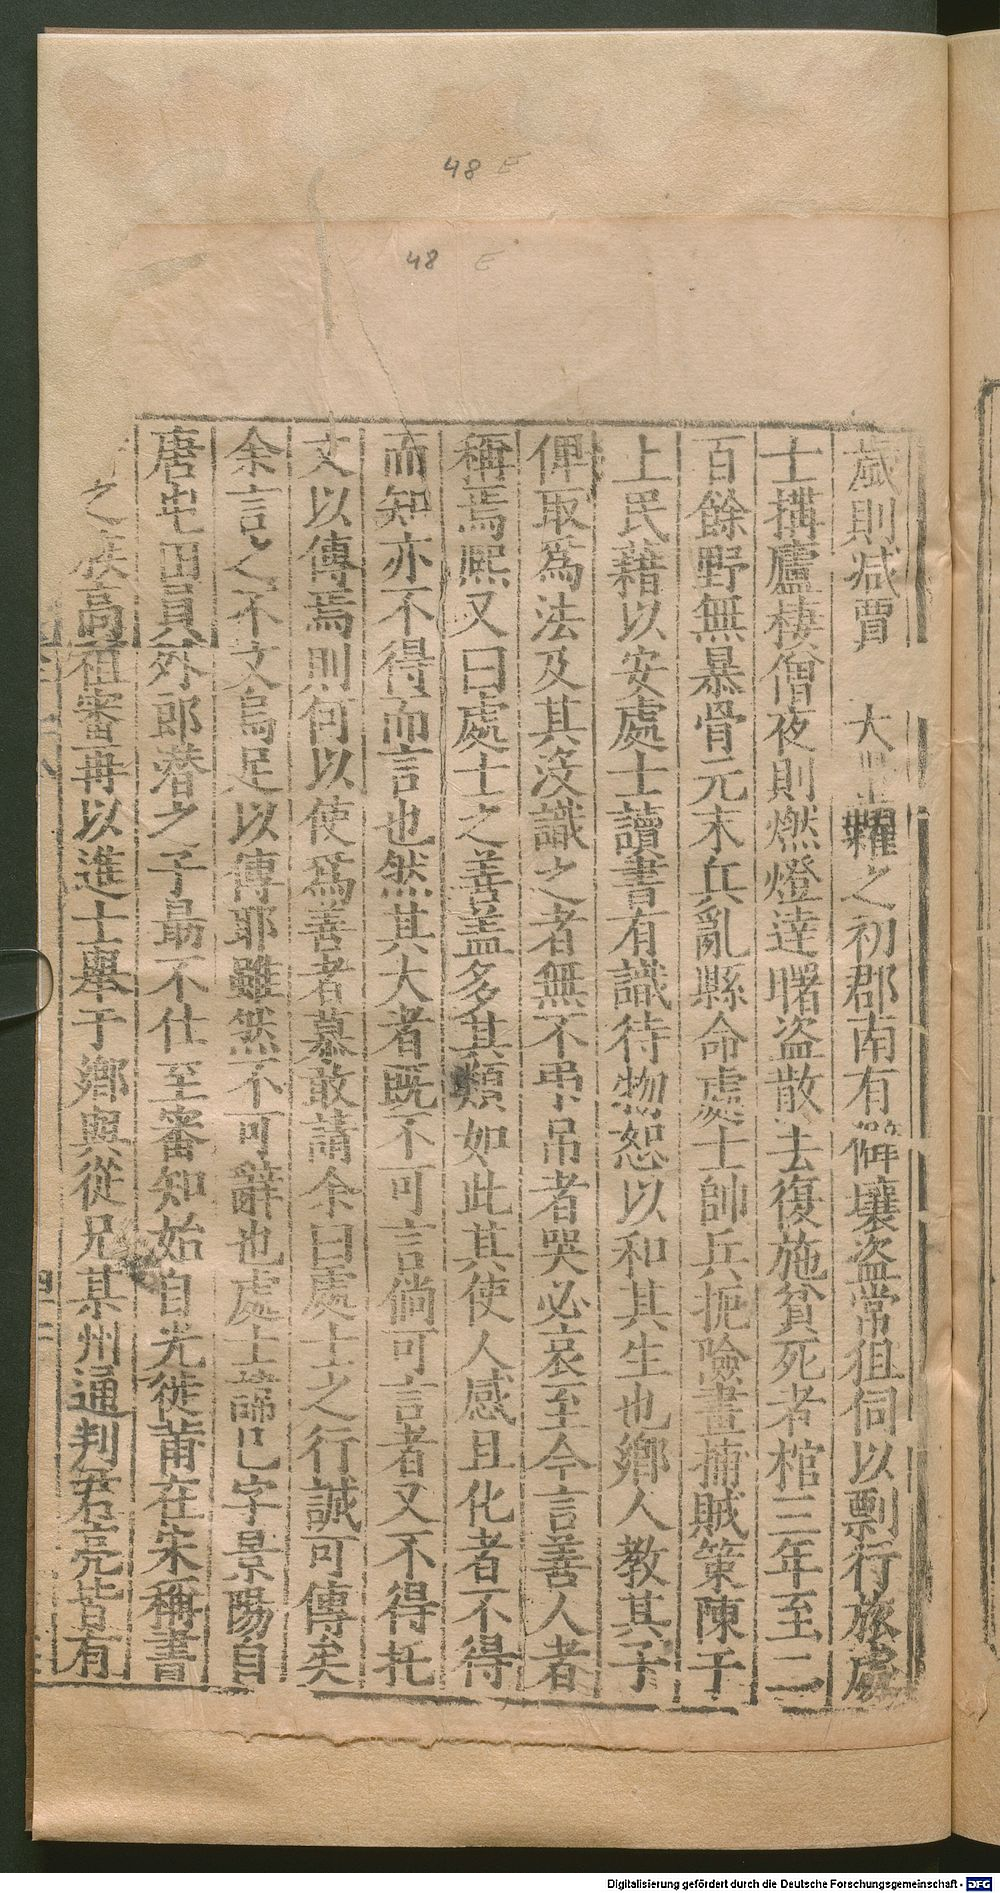 48 E
48 E
歲則减賈大糶之初郡南有僻壤盗常徂伺以剽行旅處
士搆廬棲僧夜則燃燈達曙盗散去復施貧死者棺三年至二
百餘野無暴骨元末兵亂縣命處士帥兵扼險畫捕賊策陳于
上民藉以安處士讀書有識待物恕以和其生也鄉人教其子
俾取爲法及其沒識之者無不弔吊者哭必哀至今言善人者
稱焉熙又曰處士之善盖多其類如此其使人感且化者不得
而知亦不得而言也然其大者既不可言倘可言者又不得托
文以傳焉則何以使爲善者慕敢請余曰處士之行誠可傳矣
余言之不文烏足以傳耶雖然不可辭也處士諱巳字景陽自
唐屯田員外郎潜之子勗不仕至審知始自光徙莆在宋稱書
之族高祖審再以進士舉于鄉與從兄某州通判君亮皆有
Digitalisierung gefördert durch die Deutsche Forschungsgemeinschaft - DFG